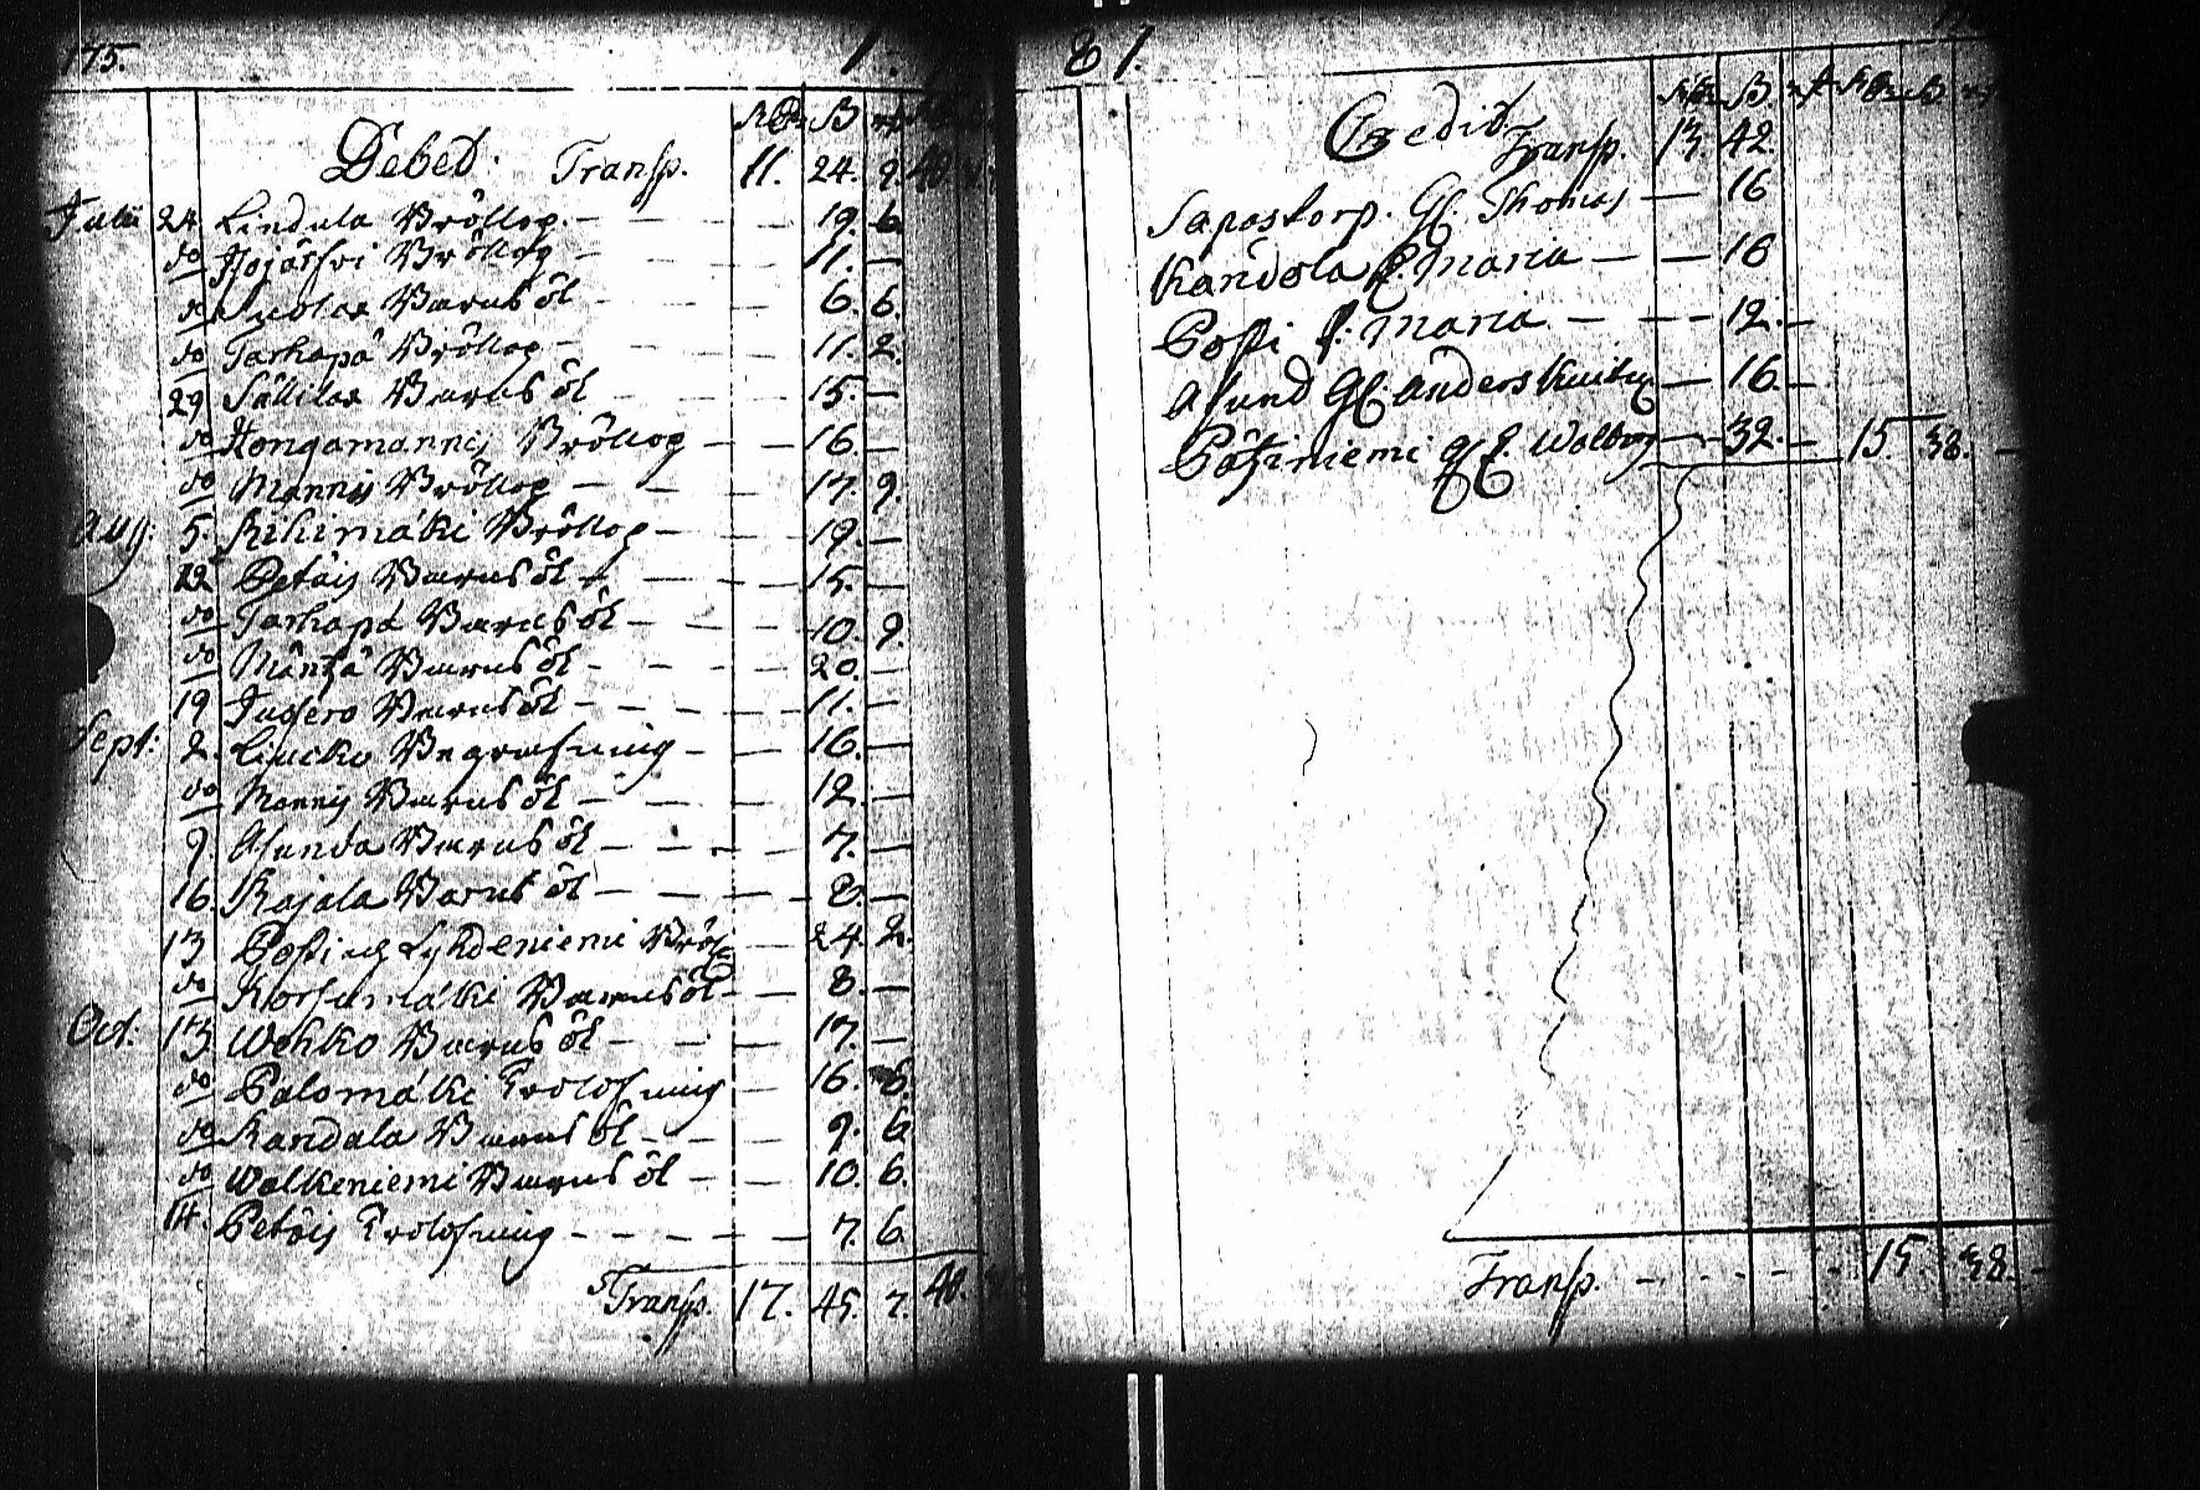 175. 1
Rdr ß rf
Debet. Transp. 11. 24. 9. 40.
Julii 24 Lindula Bröllop. — 19. 6.
do Hojärfvi Bröllop — 11. —
do Barnsöl — 6. 6.
do Tarhapä Bröllop — 11. 2.
29 Sällilar Barnsöl 15. —
do Hongamannis Bröllop — 16. —
do Mannis Bröllop — 17. 9.
Aug: 5. Rihimäki Bröllop — 19. —
12 Petäis Barnsöl — 15. —
do Tarhapä Barnsöl — 10. 9.
do Mäntä Barnsöl — 20. —
19 Jussero Barnsöl — 11. —
Sept: 2. Liucko Begrafning — 16. —
do Mannis Barnsöl — 12. —
9. Asunda Barnsöl — 7. —
16. Kajala Barnsöl — 8. —
13 Possi och Lykdeniemi Bröl — 24. 2.
do Korsumäki Barnsöl — 8. —
Oct: 13 Wehko Barnsöl — 17. —
do Palomäki Trolofning — 16. 6.
do Kandala Barnsöl — 9. 6
do Walkeniemi Barnsöl — 10. 6.
14. Petäis Trolofning — 7. 6.
Transp. 17. 45. 7. 40.
81.
Rdr ß. rf Rdr ß rf
Credit Transp. 13. 42.
Sapastorp. Gl. Thomas — 16
Kandola P. Maria — — 16
Possi P. Maria — — 12. —
Asund Gl. Anders — 16. —
Pätiniemi Gl. P. Walborg — 32. — 15. 38. —
Transp. — 15. 38. —